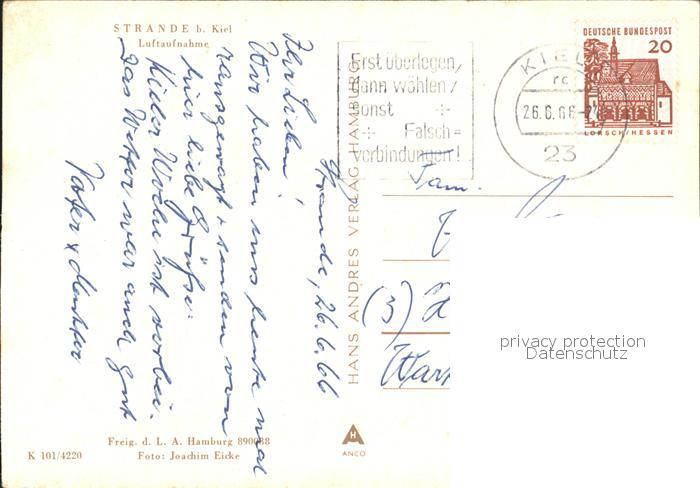 STRANDE b. Kiel
Luftaufnahme
Strande, 26.6.66
Ihr Lieben!
Wir haben uns heute mal
rausgewagt + senden von
hier liebe Grüße.
Kieler Woche ist vorbei.
Das Wetter war auch gut
Vater + Mutter
Freig. d. L. A. Hamburg 890088
Foto: Joachim Eicke
K 101/4220
HANS ANDRES VERLAG HAMBURG
ANCO
Erst überlegen,
dann wählen,
sonst
Falsch=
verbindungen!
KIEL
26.6.66
23
DEUTSCHE BUNDESPOST
20
LORSCH/HESSEN
Fam.
(3)
privacy protection
Datenschutz